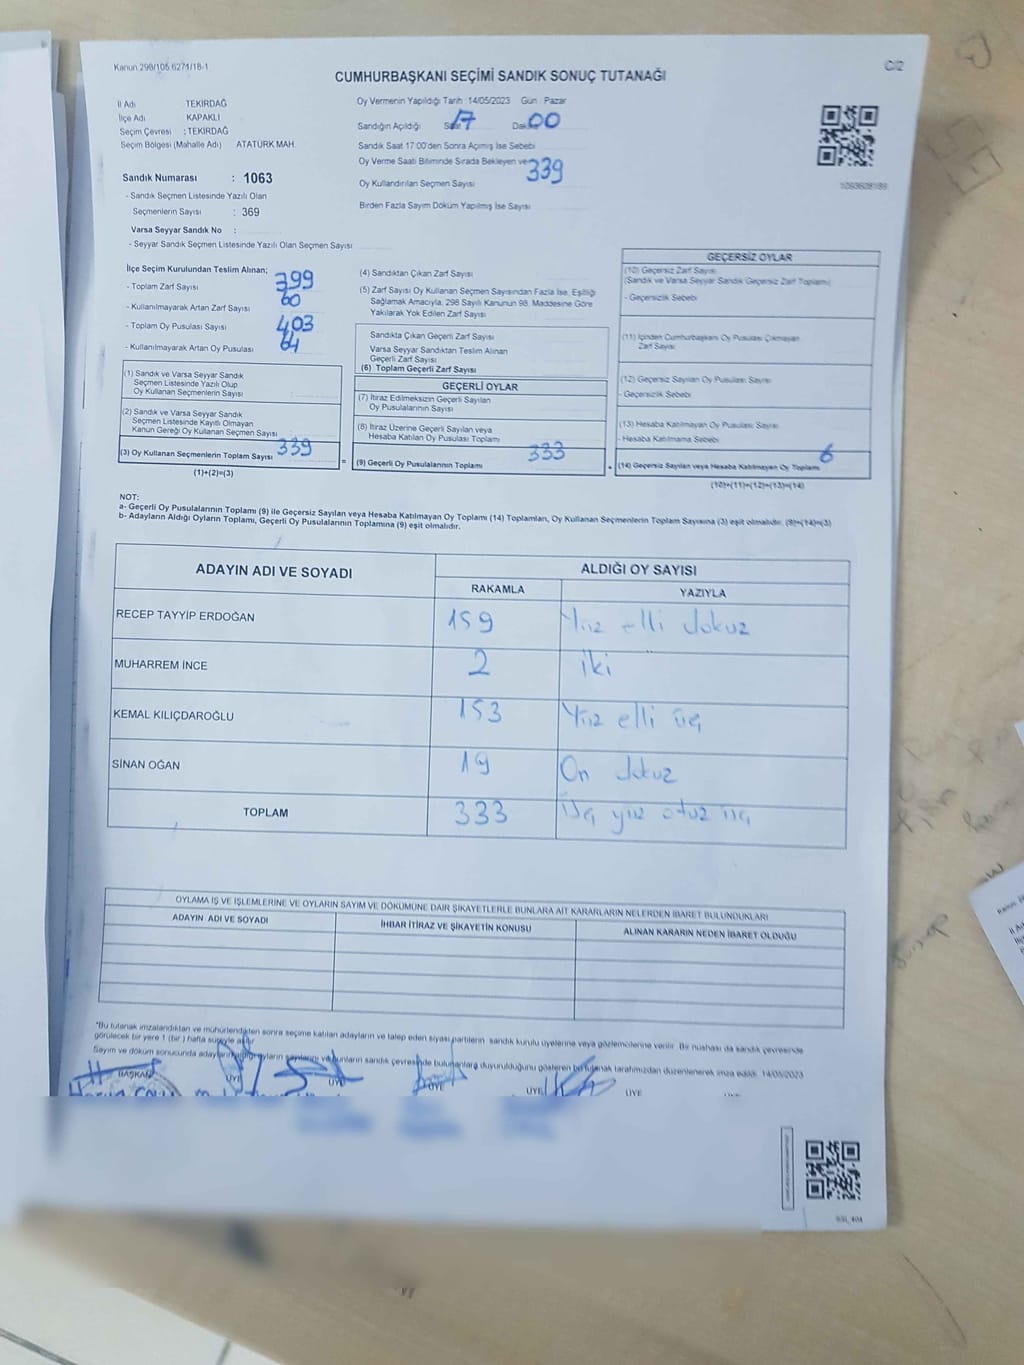 Kanun 298/105 6271/18-1
C/2
CUMHURBAŞKANI SEÇİMİ SANDIK SONUÇ TUTANAĞI
İl Adı TEKİRDAĞ
İlçe Adı KAPAKLI
Seçim Çevresi : TEKİRDAĞ
Seçim Bölgesi (Mahalle Adı) ATATÜRK MAH.
Sandık Numarası : 1063
- Sandık Seçmen Listesinde Yazılı Olan
Seçmenlerin Sayısı : 369
Varsa Seyyar Sandık No :
- Seyyar Sandık Seçmen Listesinde Yazılı Olan Seçmen Sayısı
Oy Vermenin Yapıldığı Tarih :14/05/2023 Gün : Pazar
Sandığın Açıldığı Saat 17 Dak. 00
Sandık Saat 17 00'den Sonra Açımış İse Sebebi
Oy Verme Saati Bitiminde Sırada Bekleyen ve
Oy Kullandırılan Seçmen Sayısı 339
Birden Fazla Sayım Döküm Yapılmış İse Sayısı
İlçe Seçim Kurulundan Teslim Alınan;
- Toplam Zarf Sayısı 399
- Kullanılmayarak Artan Zarf Sayısı 60
- Toplam Oy Pusulası Sayısı 403
- Kullanılmayarak Artan Oy Pusulası 64
(1) Sandık ve Varsa Seyyar Sandık
Seçmen Listesinde Yazılı Olup
Oy Kullanan Seçmenlerin Sayısı
(2) Sandık ve Varsa Seyyar Sandık
Seçmen Listesinde Kayıtlı Olmayan
Kanun Gereği Oy Kullanan Seçmen Sayısı
(3) Oy Kullanan Seçmenlerin Toplam Sayısı 339
(1)+(2)=(3)
(4) Sandıktan Çıkan Zarf Sayısı
(5) Zarf Sayısı Oy Kullanan Seçmen Sayısından Fazla İse, Eşitliği
Sağlamak Amacıyla, 298 Sayılı Kanunun 98. Maddesine Göre
Yakılarak Yok Edilen Zarf Sayısı
Sandıkta Çıkan Geçerli Zarf Sayısı
Varsa Seyyar Sandıktan Teslim Alınan
Geçerli Zarf Sayısı
(6) Toplam Geçerli Zarf Sayısı
GEÇERLİ OYLAR
(7) İtiraz Edilmeksizin Geçerli Sayılan
Oy Pusulalarının Sayısı
(8) İtiraz Üzerine Geçerli Sayılan veya
Hesaba Katılan Oy Pusulası Toplamı
= (9) Geçerli Oy Pusulalarının Toplamı 333
GEÇERSİZ OYLAR
(10) Geçersiz Zarf Sayısı
(Sandık ve Varsa Seyyar Sandık Geçersiz Zarf Toplamı)
- Geçersizlik Sebebi
(11) İçinden Cumhurbaşkanı Oy Pusulası Çıkmayan
Zarf Sayısı
(12) Geçersiz Sayılan Oy Pusulası Sayısı
- Geçersizlik Sebebi
(13) Hesaba Katılmayan Oy Pusulası Sayısı
- Hesaba Katılmama Sebebi
+ (14) Geçersiz Sayılan veya Hesaba Katılmayan Oy Toplamı 6
(10)+(11)+(12)+(13)=(14)
NOT:
a- Geçerli Oy Pusulalarının Toplamı (9) ile Geçersiz Sayılan veya Hesaba Katılmayan Oy Toplamı (14) Toplamları, Oy Kullanan Seçmenlerin Toplam Sayısına (3) eşit olmalıdır. (9)+(14)=(3)
b- Adayların Aldığı Oyların Toplamı, Geçerli Oy Pusulalarının Toplamına (9) eşit olmalıdır.
ADAYIN ADI VE SOYADI ALDIĞI OY SAYISI
RAKAMLA YAZIYLA
RECEP TAYYİP ERDOĞAN 159 Yüz elli dokuz
MUHARREM İNCE 2 iki
KEMAL KILIÇDAROĞLU 153 Yüz elli üç
SİNAN OĞAN 19 On dokuz
TOPLAM 333 Üç yüz otuz üç
OYLAMA İŞ VE İŞLEMLERİNE VE OYLARIN SAYIM VE DÖKÜMÜNE DAİR ŞİKAYETLERLE BUNLARA AİT KARARLARIN NELERDEN İBARET BULUNDUKLARI
ADAYIN ADI VE SOYADI İHBAR İTİRAZ VE ŞİKAYETİN KONUSU ALINAN KARARIN NEDEN İBARET OLDUĞU
*Bu tutanak imzalandıktan ve mühürlendikten sonra seçime katılan adayların ve talep eden siyasi partilerin sandık kurulu üyelerine veya gözlemcilerine verilir. Bir nüshası da sandık çevresinde
görülecek bir yere 1 (bir) hafta süreyle asılır
Sayım ve döküm sonucunda adayların aldığı oyların sayılarını ve bunların sandık çevresinde bulunanlara duyurulduğunu gösteren bu tutanak tarafımızdan düzenlenerek imza edildi. 14/05/2023
BAŞKAN ÜYE ÜYE ÜYE ÜYE ÜYE